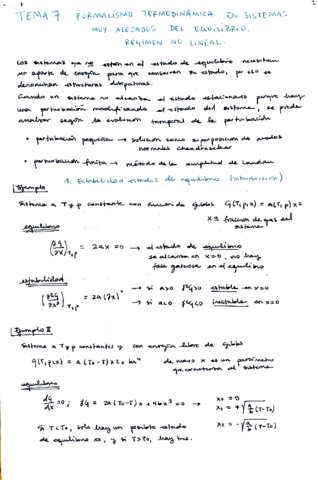 1
TEMA 7 FORMALISMO TERMODINÁMICO EN SISTEMAS
MUY ALEJADOS DEL EQUILIBRIO.
RÉGIMEN NO LINEAL.
Los sistemas que no están en el estado de equilibrio necesitan
un aporte de energía para que conserven su estado, por eso se
denominan estructuras disipativas.
Cuando un sistema no alcanza el estado estacionario porque hay
una perturbación modificando el estado del sistema, se puede
analizar según la evolución temporal de la perturbación
• perturbación pequeña → solución como superposición de modos
normales chandrasekhar
• perturbación finita → método de la amplitud de Landau
1. Estabilidad estados de equilibrio (introducción)
Ejemplo
Sistema a T y p constante con función de Gibbs G(T,p,x) = a(T,p)x²
x ≡ fracción de gas del
sistema
equilibrio
(∂G/∂x)T,p = 2ax = 0 → el estado de equilibrio
se alcanza en x=0, no hay
fase gaseosa en el equilibrio
estabilidad
(∂²G/∂x²)T,p = 2a(∂x)² → si a>0 δ²G>0 estable en x=0
→ si a<0 δ²G<0 inestable en x=0
Ejemplo II
Sistema a T y p constantes y con energía libre de Gibbs
G(T,p,x) = a(T₀-T)x² + bx⁴ de nuevo x es un parámetro
que caracteriza el sistema
equilibrio
dG/dx = 0; δG = 2a(T₀-T)x + 4bx³ = 0 → x₀ = 0
x₁ = +√a/b (T-T₀)
x₂ = -√a/b (T-T₀)
Si T<T₀, solo hay un posible estado
de equilibrio x₀, y si T>T₀, hay tres.